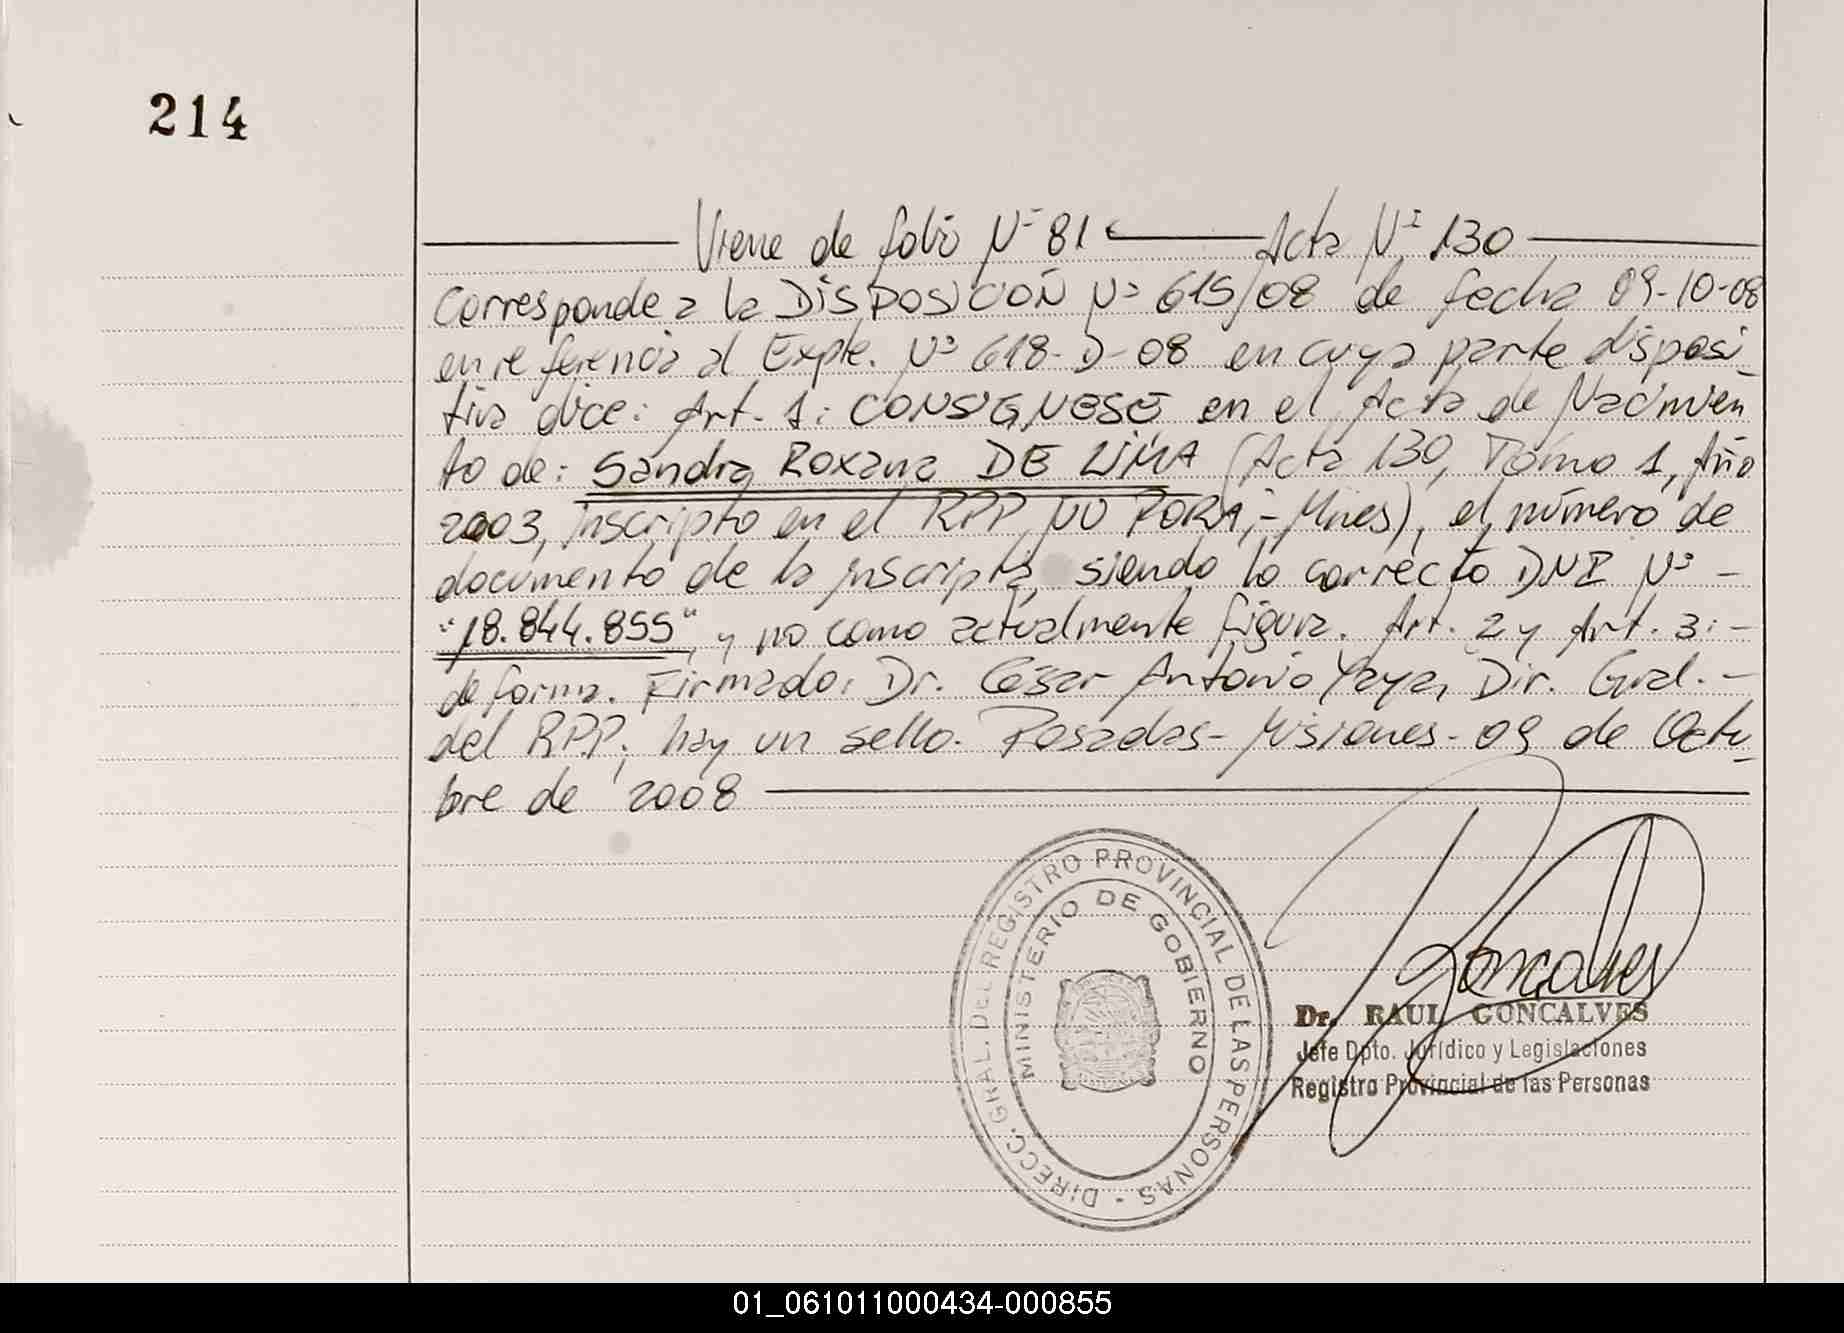 214
Viene de folio Nº 81 Acta Nº 130
Corresponde a la DISPOSICIÓN Nº 615/08 de fecha 09-10-08
en referencia al Expte. Nº 618-D-08 en cuya parte disposi_
tiva dice: Art. 1: CONSIGNESE en el Acta de Nacimien_
to de: Sandra Roxana DE LIMA (Acta 130, Tomo 1, Año
2003, inscripto en el RPP, ÑU PORA,- Mnes), el número de
documento de la inscripta, siendo lo correcto DNI Nº -
"18.844.855", y no como actualmente figura. Art. 2 y Art. 3: -
de forma. Firmado: Dr. César Antonio Yaya, Dir. Gral. -
del RPP, hay un sello. Posadas- Misiones- 09 de Octu_
bre de 2008
DIRECC. GRAL. DEL REGISTRO PROVINCIAL DE LAS PERSONAS -
MINISTERIO DE GOBIERNO
Goncalves
Dr. RAUL GONCALVES
Jefe Dpto. Jurídico y Legislaciones
Registro Provincial de las Personas
01_061011000434-000855